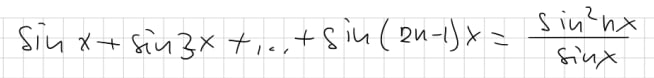 sin x + sin 3x + ... + sin(2n-1)x = sin²nx / sinx